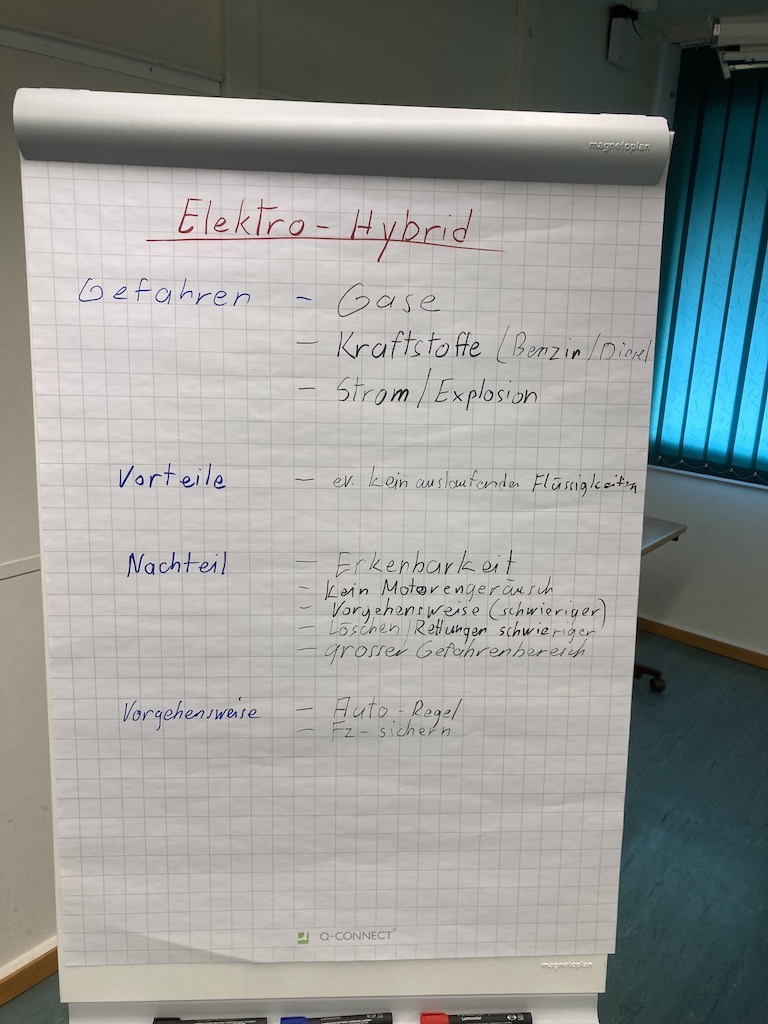 magnetoplan
Elektro-Hybrid
Gefahren - Gase
- Kraftstoffe (Benzin/Diesel
- Strom/Explosion
Vorteile - ev. kein auslaufenden Flüssigkeiten
Nachteil - Erkenbarkeit
- kein Motorengeräusch
- Vorgehensweise (schwieriger)
- Löschen/Rettungen schwieriger
- grosser Gefahrenbereich
Vorgehensweise - Auto-Regel
- Fz-sichern
Q-CONNECT®
magnetoplan